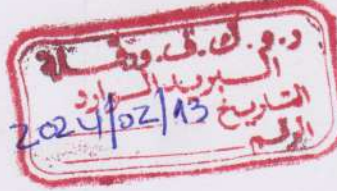 د.م.ك.ف.و
البريد الوارد
التاريخ 2024/02/13
الرقم